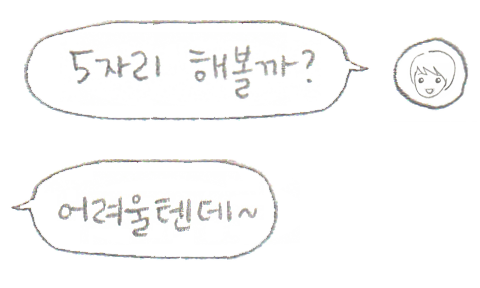 5자리 해볼까?
어려울텐데~